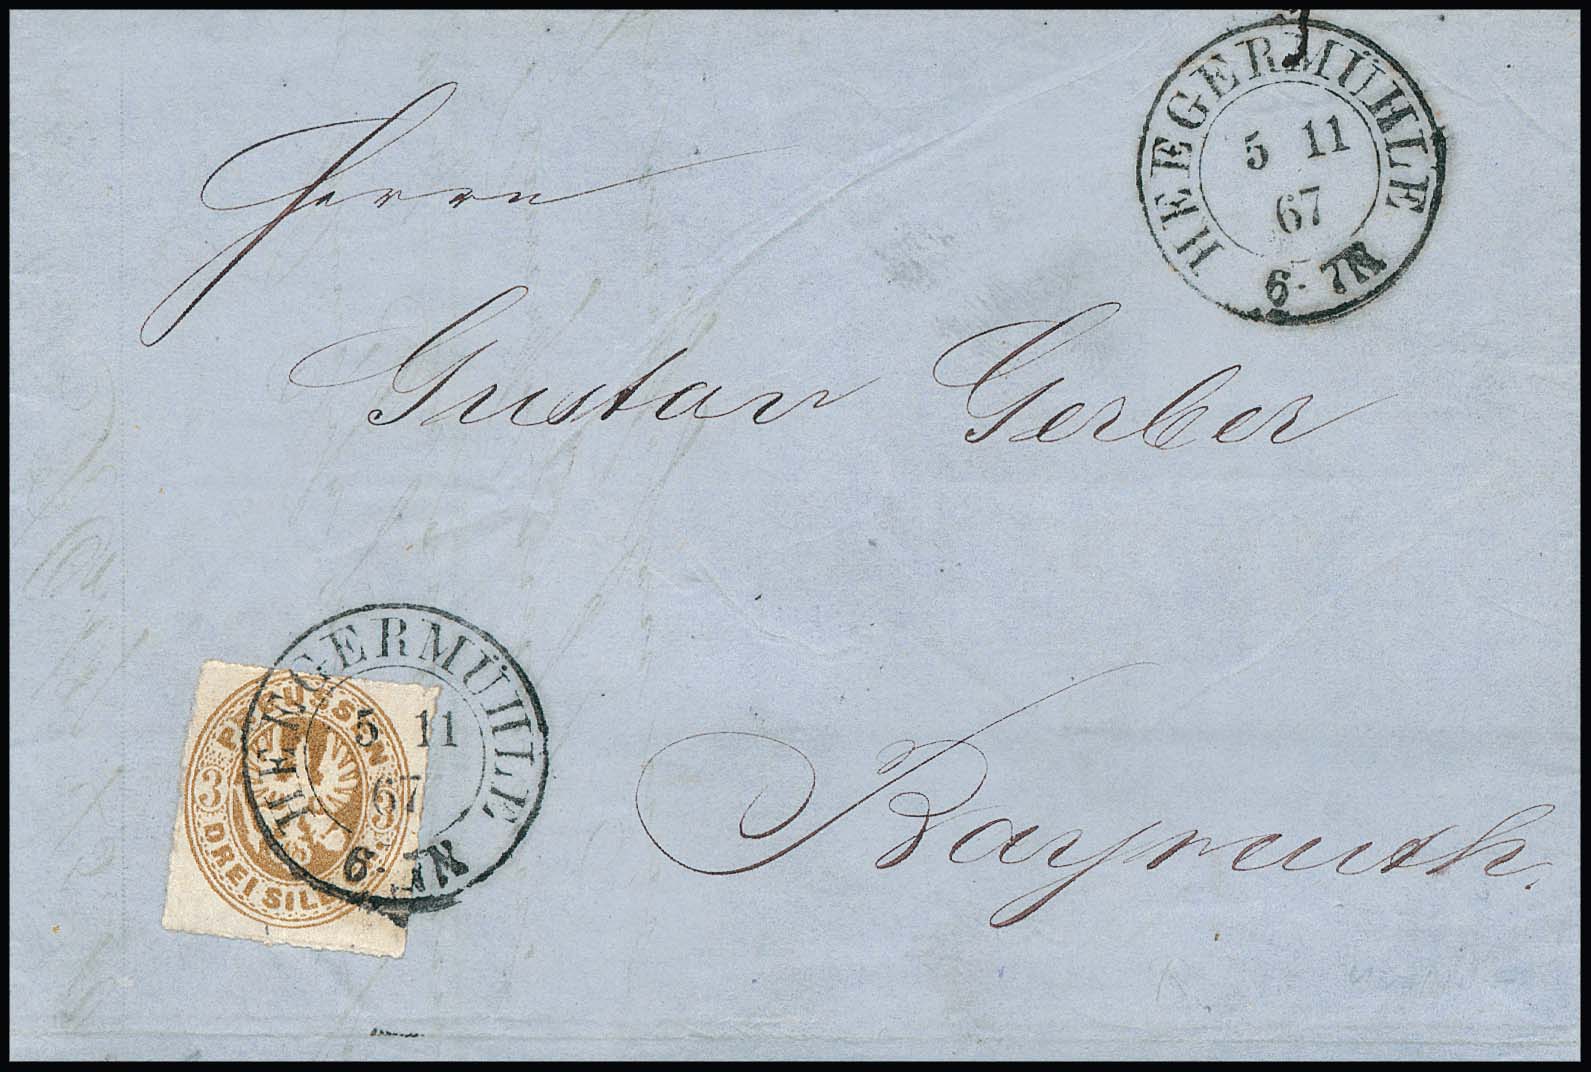 HEEGERMÜHLE
5 11
67
6-7N
Herrn
Gustav Gerber
Bayreuth.
HEEGERMÜHLE
5 11
67
6-7N
PREUSSEN
3 3
DREI SILB